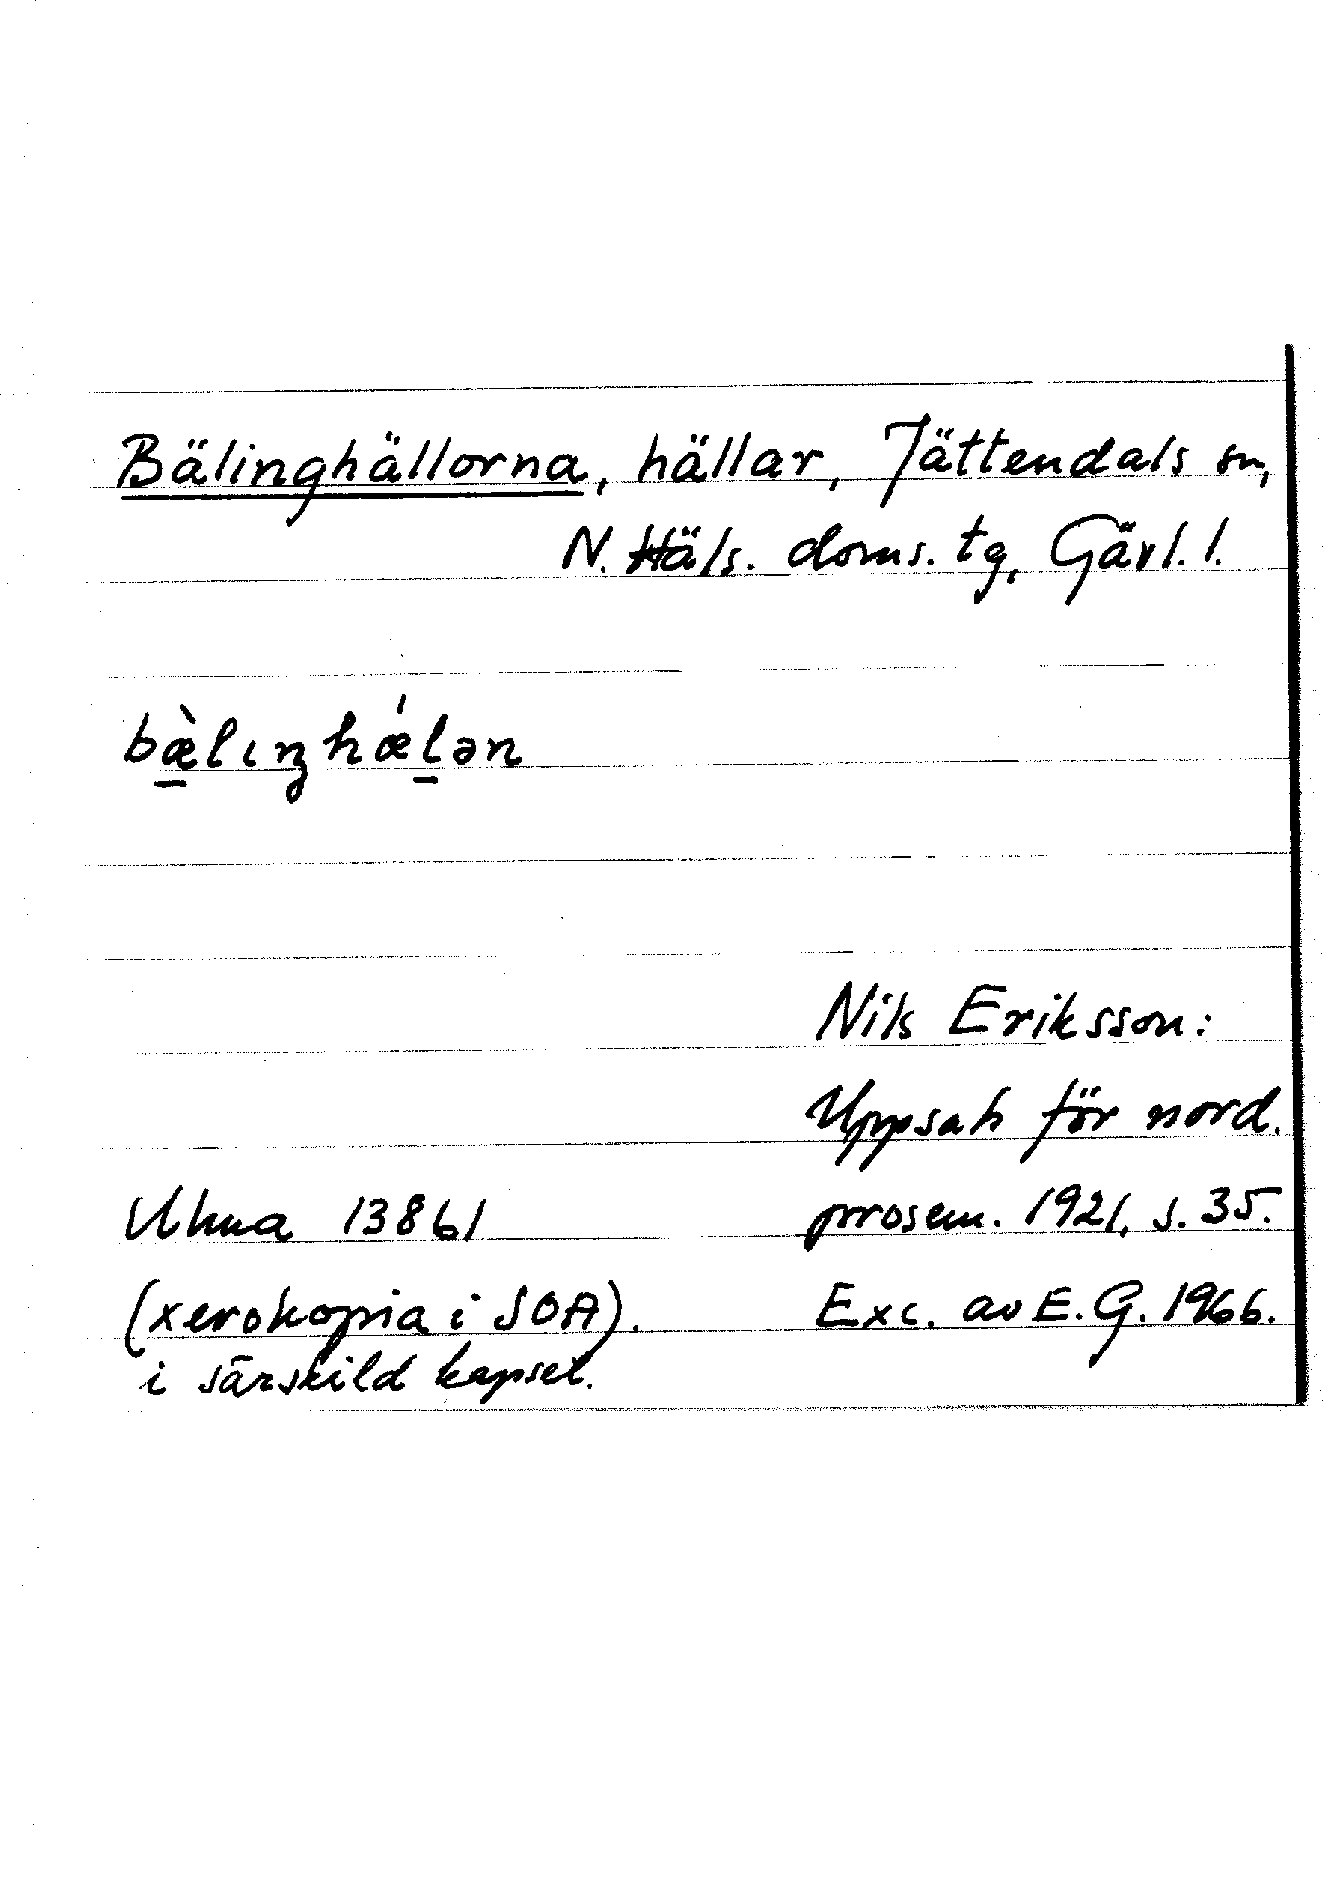 Bälinghällorna, hällar, Jättendals sn,
N. Häls. doms. tg, Gävl. l.
bæ̀lıŋhǽlən
Nils Eriksson:
Uppsats för nord.
Uhua 13861 prosem. 1921, s. 35.
(xerokopia i SOA). Exc. av E. G. 1966.
i särskild kapsel.